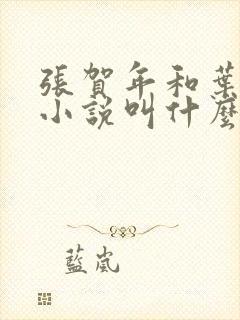 張賀年和葉
小說叫什麼
藍嵐